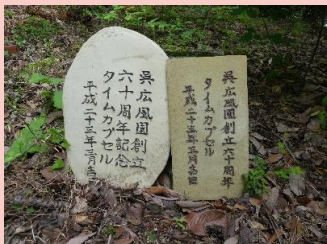 呉広風園創立
六十周年記念
タイムカプセル
平成二十三年三月吉日
呉広風園創立六十周年
タイムカプセル
平成二十年三月吉日